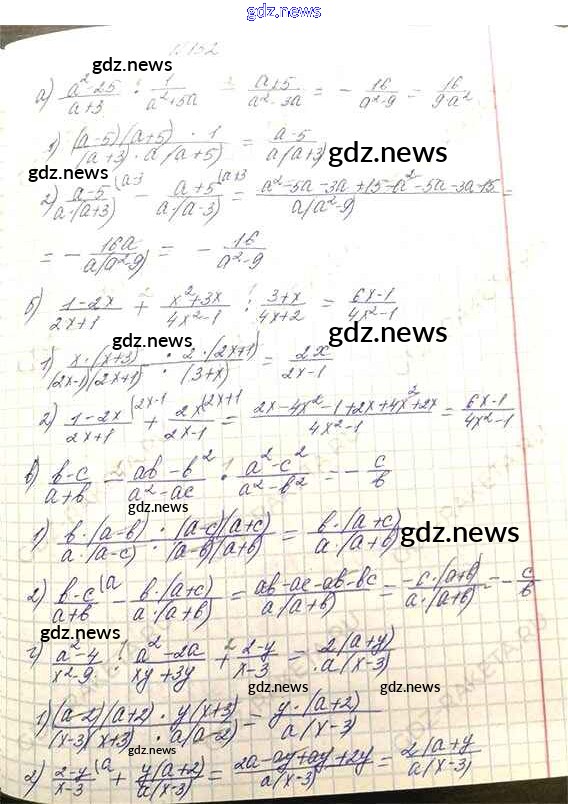 gdz.news
№ 152
gdz.news
а) (a²-25)/(a+3) : 1/(a²+5a) - (a+5)/(a²-3a) = - 16/(a²-9) = 16/(9-a²)
1) ((a-5)(a+5) · 1)/((a+3) · a (a+5)) = (a-5)/(a(a+3))
gdz.news
gdz.news
2) (a-5)/(a·(a+3)) (a-3 - (a+5)/(a·(a-3)) (a+3 = (a²-5a-3a+15-a²-5a-3a-15)/(a(a²-9)) =
= - 16a/(a(a²-9)) = - 16/(a²-9)
б) (1-2x)/(2x+1) + (x²+3x)/(4x²-1) : (3+x)/(4x+2) = (6x-1)/(4x²-1)
gdz.news
1) (x·(x+3) · 2·(2x+1))/((2x-1)(2x+1) · (3+x)) = 2x/(2x-1)
gdz.news
2) (1-2x)/(2x+1) (2x-1 + 2x/(2x-1) (2x+1 = (2x-4x²-1+2x+4x²+2x)/(4x²-1) = (6x-1)/(4x²-1)
в) (b-c)/(a+b) - (ab-b²)/(a²-ac) : (a²-c²)/(a²-b²) = - c/b
1) (b·(a-b) · (a-c)(a+c))/(a·(a-c) · (a-b)(a+b)) = (b·(a+c))/(a(a+b))
gdz.news
gdz.news
2) (b-c)/(a+b) (a - (b·(a+c))/(a·(a+b)) = (ab-ac-ab-bc)/(a(a+b)) = (-c·(a+b))/(a·(a+b)) = - c/b
г) (a²-4)/(x²-9) : (a²-2a)/(xy+3y) + (2-y)/(x-3) = (2(a+y))/(a(x-3))
gdz.news
gdz.news
1) ((a-2)(a+2) · y(x+3))/((x-3)(x+3) · a(a-2)) = (y·(a+2))/(a(x-3))
gdz.news
2) (2-y)/(x-3) (a + (y(a+2))/(a(x-3)) = (2a-ay+ay+2y)/(a(x-3)) = (2(a+y)/(a(x-3))
gdz.news